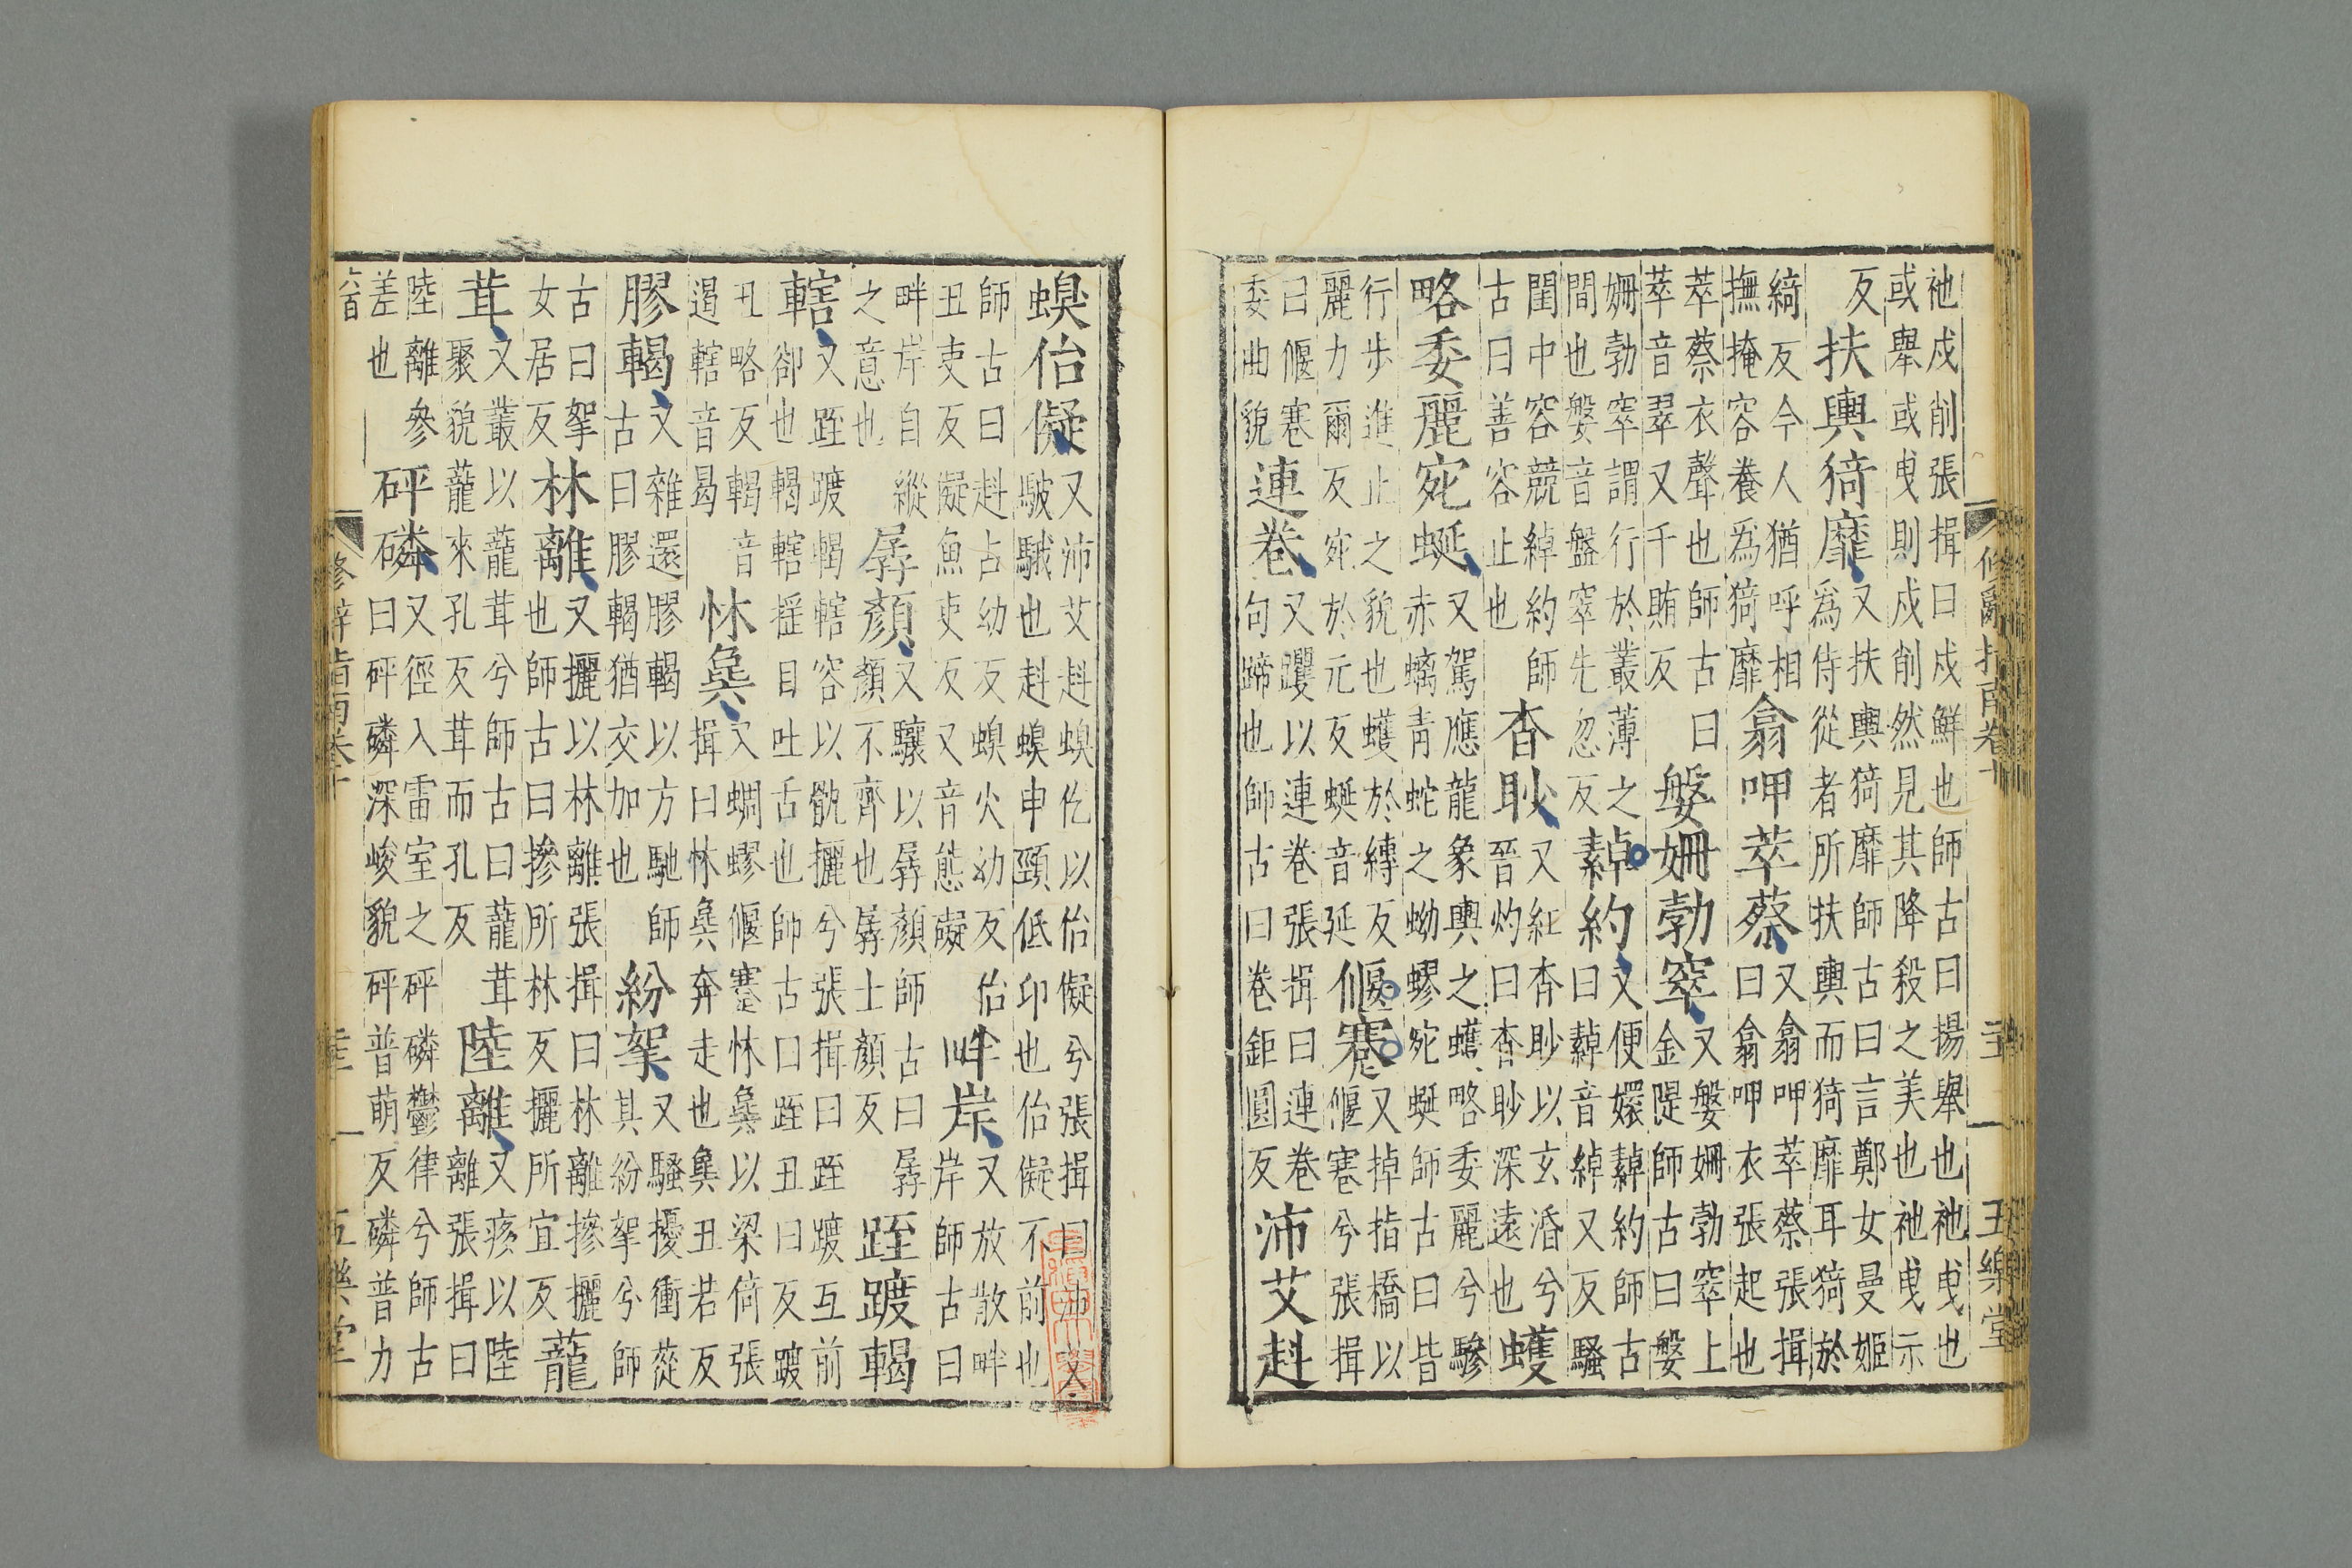 修辭指南卷十 五樂堂
祂戍削張揖曰戍鮮也師古曰揚舉也祂曳也
或舉或曳則戍削然見其降殺之美也祂曳示
反
扶輿猗靡
又扶輿猗靡師古曰言鄭女曼姬
爲侍從者所扶輿而猗靡耳猗於
綺反今人猶呼相
撫掩容養爲猗靡
翕呷萃蔡
又翕呷萃蔡張揖
曰翕呷衣張起也
萃蔡衣聲也師古曰
萃音翠又千賄反
媻姍勃窣
又媻姍勃窣上
金隄師古曰媻
姍勃窣謂行於叢薄之
間也媻音盤窣先忽反
繛約
又便嬛繛約師古
曰繛音綽又反騷
閨中容競綽約師
古曰善容止也
杳眇
又紅杳眇以玄湣兮
晉灼曰杳眇深遠也
蠖
略委麗宛蜒
又駕應龍象輿之蠖略委麗兮驂
赤螭青蛇之蚴蟉宛蜒師古曰皆
行步進止之貌也蠖於縛反
麗力爾反宛於元反蜒音延
偃蹇
又掉指橋以
偃蹇兮張揖
曰偃蹇
委曲貌
連卷
又躩以連卷張揖曰連卷
句蹄也師古曰卷鉅圓反
沛艾赳
螑佁儗
又沛艾赳螑仡以佁儗兮張揖曰沛艾
駊騀也赳螑申頸低卬也佁儗不前也
師古曰赳古幼反螑火幼反佁
丑吏反儗魚吏反又音態礙
畔岸
又放散畔
岸師古曰
畔岸自縱
之意也
孱顏
又驤以孱顏師古曰孱
顏不齊也孱士顏反
跮踱輵
轄
又跮踱輵轄容以骫麗兮張揖曰跮踱互前
卻也輵轄搖目吐舌也師古曰跮丑日反踱
丑略反輵音
遏轄音曷
怵㚟
又蜩蟉偃蹇怵㚟以梁倚張
揖曰怵㚟奔走也㚟丑若反
膠輵
又雜還膠輵以方馳師
古曰膠輵猶交加也
紛挐
又騷擾衝蓯
其紛挐兮師
古曰挐
女居反
林離
又攦以林離張揖曰林離摻攦
也師古曰摻所林反攦所宜反
蘢
茸
又叢以蘢茸兮師古曰蘢茸
聚貌蘢來孔反茸而孔反
陸離
又痑以陸
離張揖曰
陸離參
差也
砰磷
又徑入雷室之砰磷鬱律兮師古
曰砰磷深峻貌砰普萌反磷普力
修辭指南卷十 五樂堂